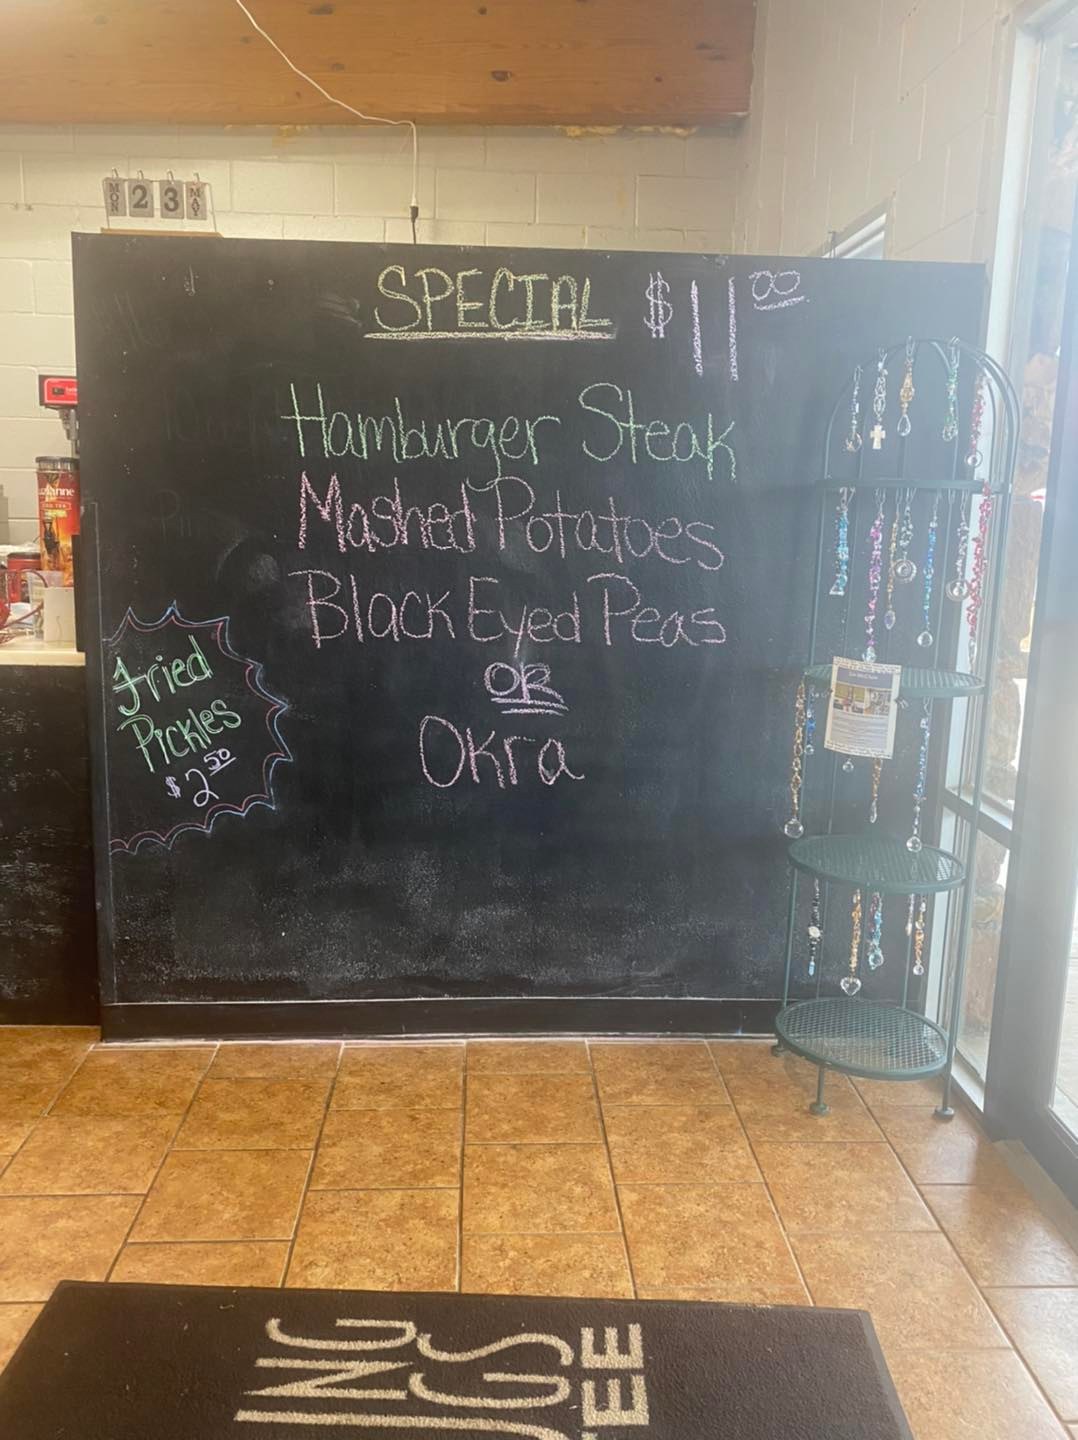 MON 23 MAY
SPECIAL $11.00
Hamburger Steak
Mashed Potatoes
Black Eyed Peas
OR
Okra
Fried
Pickles
$2.50